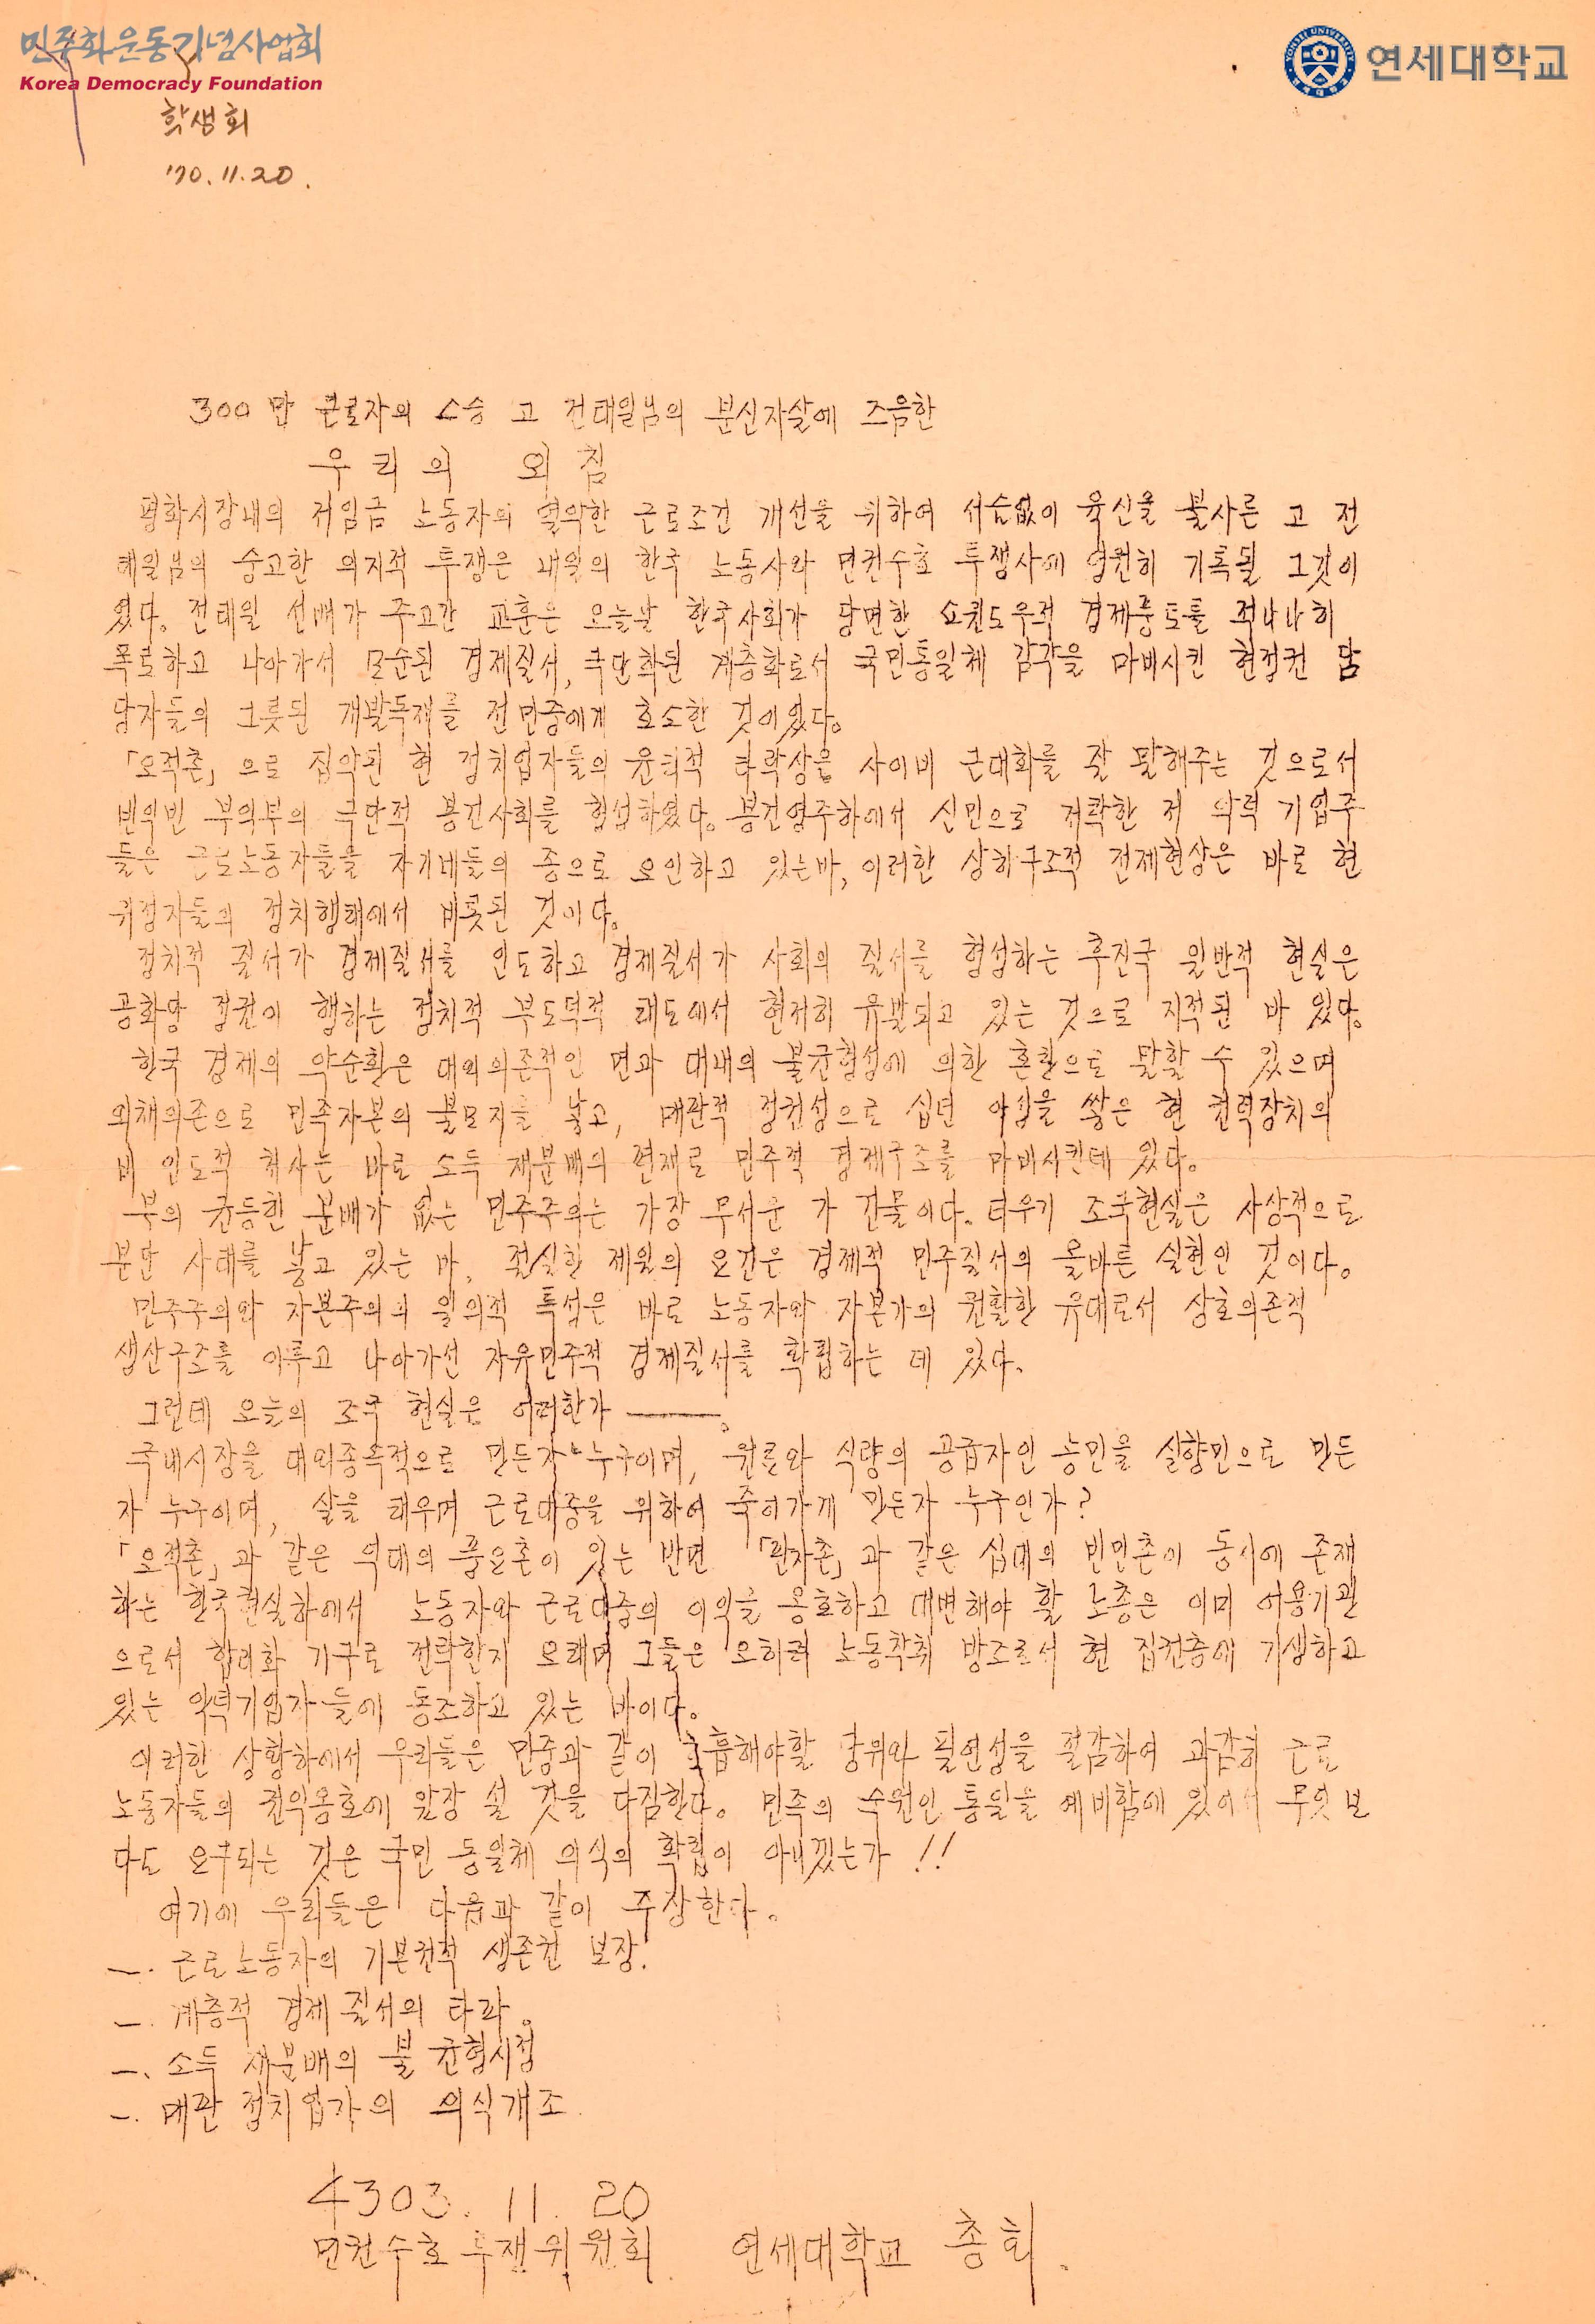 민주화운동기념사업회
Korea Democracy Foundation
연세대학교
학생회
'70. 11. 20.
300만 근로자의 스승 고 전태일님의 분신자살에 즈음한
우리의 외침
평화시장내의 저임금 노동자의 열악한 근로조건 개선을 위하여 서슴없이 육신을 불사른 고 전
태일님의 숭고한 의지적 투쟁은 내일의 한국 노동사와 민권수호 투쟁사에 영원히 기록될 그것이
였다. 전태일 선배가 주고간 교훈은 오늘날 한국사회가 당면한 쇼윈도우적 경제풍토를 적나나히
폭로하고 나아가서 모순된 경제질서, 극단화된 계층화로서 국민통일체 감각을 마비시킨 현정권 담
당자들의 그릇된 개발독재를 전민중에게 호소한 것이었다.
「오적촌」으로 집약된 현 정치업자들의 윤리적 타락상은 사이비 근대화를 잘 말해주는 것으로서
빈익빈 부익부의 극단적 봉건사회를 형성하였다. 봉건영주하에서 신민으로 전락한 저 악덕 기업주
들은 근로노동자들을 자기네들의 종으로 오인하고 있는바, 이러한 상하구조적 전제현상은 바로 현
위정자들의 정치행태에서 비롯된 것이다.
정치적 질서가 경제질서를 인도하고 경제질서가 사회의 질서를 형성하는 후진국 일반적 현실은
공화당 정권이 행하는 정치적 부도덕적 태도에서 현저히 유발되고 있는 것으로 지적된 바 있다.
한국 경제의 악순환은 대외의존적인 면과 대내의 불균형성에 의한 혼란으로 말할 수 있으며
외채의존으로 민족자본의 불모지를 낳고, 매판적 정권성으로 십년 아성을 쌓은 현 권력장치의
비 인도적 처사는 바로 소득 재분배의 편재로 민주적 경제구조를 마비시킨데 있다.
부의 균등한 분배가 없는 민주주의는 가장 무서운 가 건물이다. 더우기 조국현실은 사상적으로
분단 사태를 낳고 있는 바, 절실한 제일의 요건은 경제적 민주질서의 올바른 실현인 것이다.
민주주의와 자본주의의 일의적 특성은 바로 노동자와 자본가의 원활한 유대로서 상호의존적
생산구조를 이루고 나아가선 자유민주적 경제질서를 확립하는 데 있다.
그런데 오늘의 조국 현실은 어떠한가 ———.
국내시장을 대외종속적으로 만든자 누구이며, 원료와 식량의 공급자인 농민을 실향민으로 만든
자 누구이며, 살을 태우며 근로대중을 위하여 죽어가게 만든자 누구인가?
「오적촌」과 같은 억대의 풍요촌이 있는 반면 「판자촌」과 같은 십대의 빈민촌이 동시에 존재
하는 한국현실하에서 노동자와 근로대중의 이익을 옹호하고 대변해야 할 노총은 이미 어용기관
으로서 합리화 기구로 전락한지 오래며 그들은 오히려 노동착취 방조로서 현 집권층에 기생하고
있는 악덕기업가들에 동조하고 있는 바이다.
이러한 상황하에서 우리들은 민중과 같이 호흡해야할 당위와 필연성을 절감하여 과감히 근로
노동자들의 권익옹호에 앞장 설 것을 다짐한다. 민족의 숙원인 통일을 예비함에 있어서 무엇보
다도 요구되는 것은 국민 동일체 의식의 확립이 아니겠는가!!
여기에 우리들은 다음과 같이 주장한다.
一. 근로노동자의 기본권적 생존권 보장.
一. 계층적 경제 질서의 타파.
一. 소득 재분배의 불 균형시정
一. 매판 정치업자의 의식개조.
4303. 11. 20
민권수호투쟁위원회 연세대학교 총회.